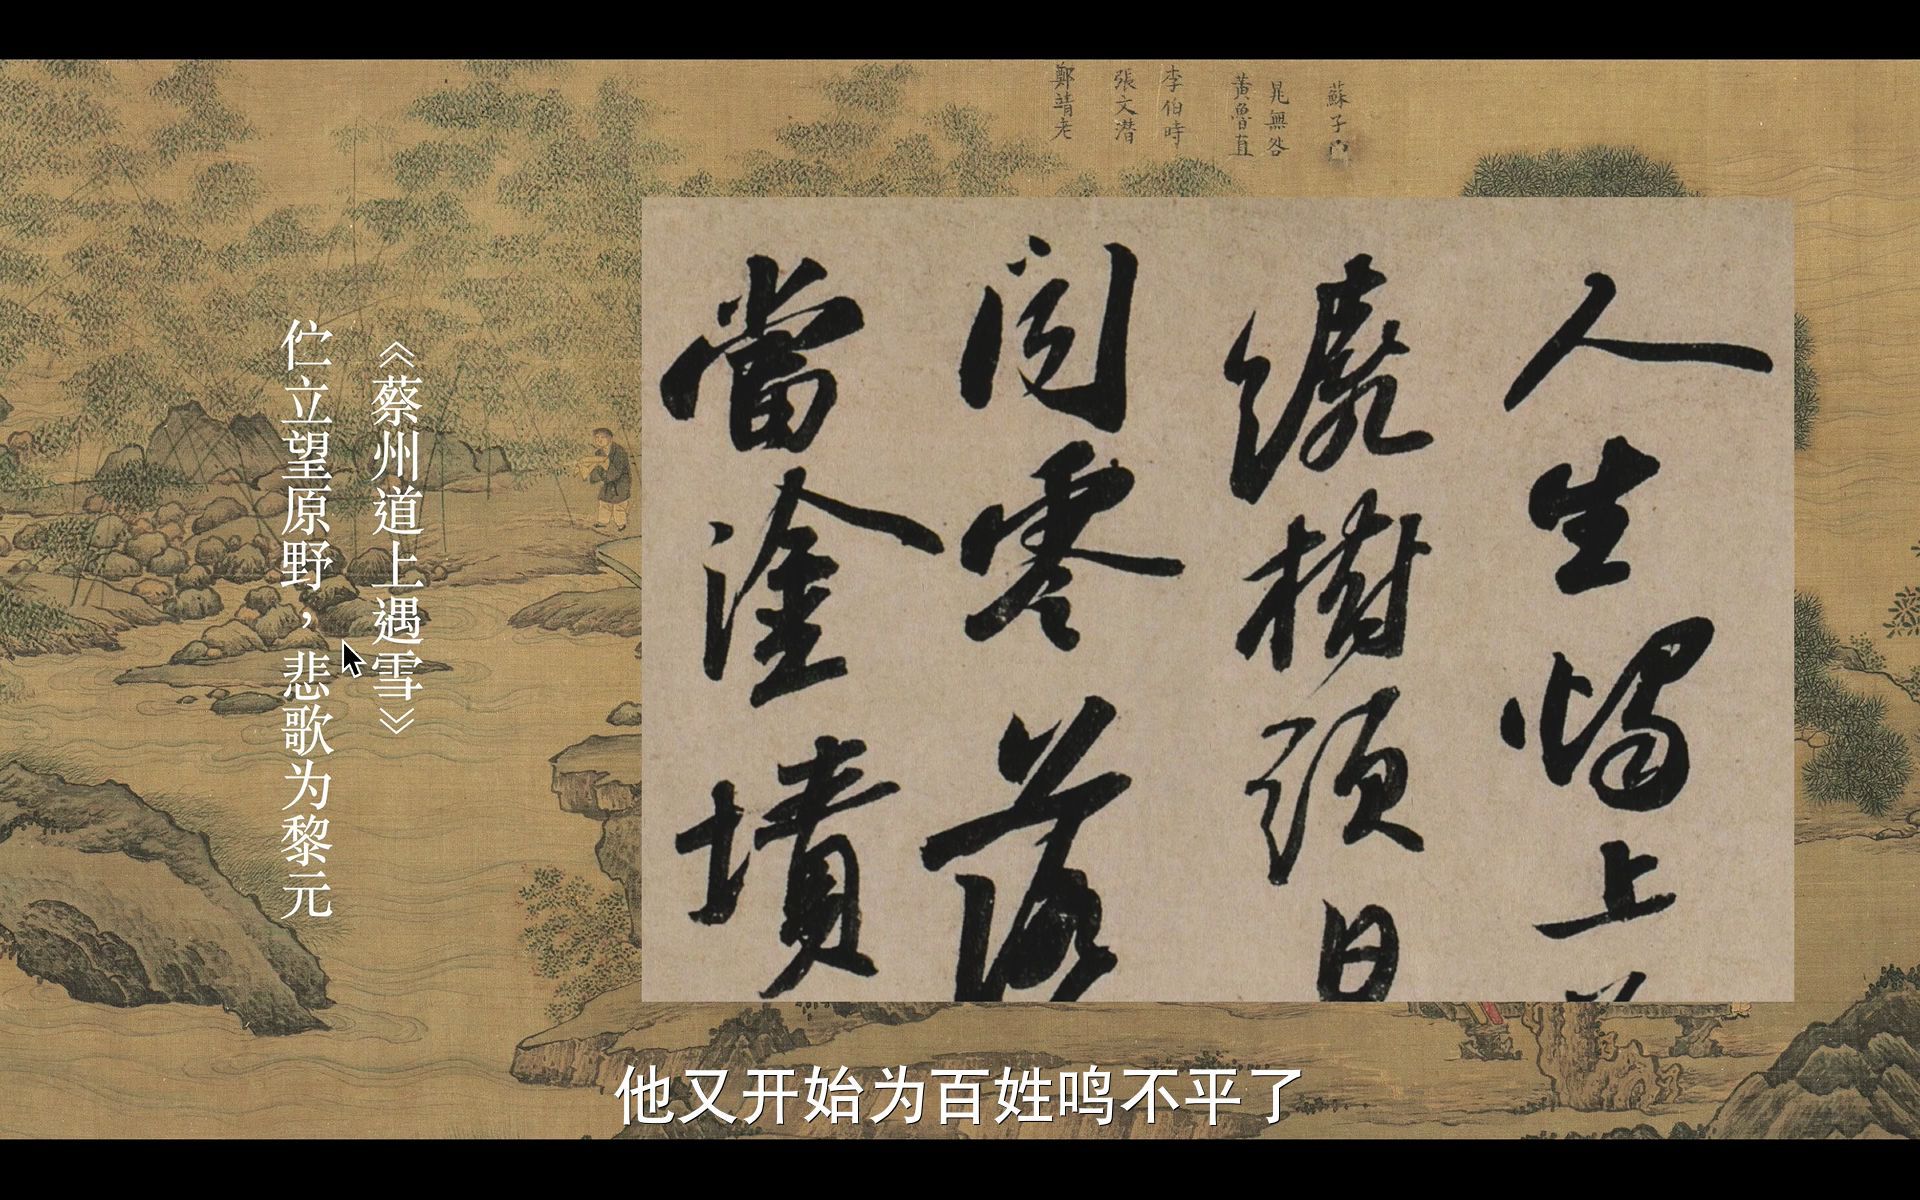 蘇子
晁無咎
黃魯直
李伯時
張文潛
鄭靖老
人生燭上
繞樹頭日
聞零落
當塗墳
《蔡州道上遇雪》
伫立望原野，悲歌为黎元
他又开始为百姓鸣不平了